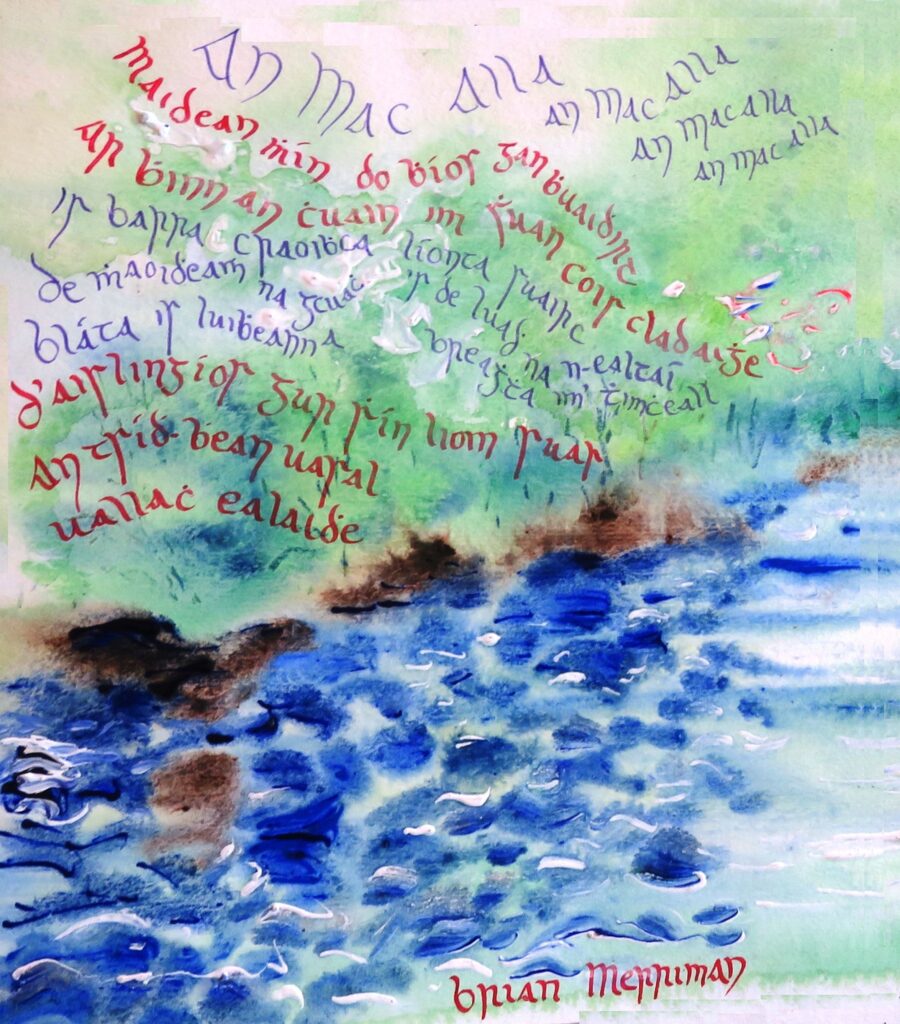 An Mac Alla
An Mac Alla
An Mac Alla
An Mac Alla
Maidean ṁín do ḃíos gan buaiḋirt
Ar ḃinn an ċuain im ṡuan cois cladaiġe
is barra craoiḃċa líonta suairc
de ṁaoiḋeaṁ na gtuaṫ 's de luaḋ na n-ealtaí
bláṫa is luiḃeanna breaġṫa im' ṫimċeall
d'aislingíos gur ṡín liom suas
An tsíḋ-ḃean uasal
uallaċ ealaiḋe
Brian Merriman